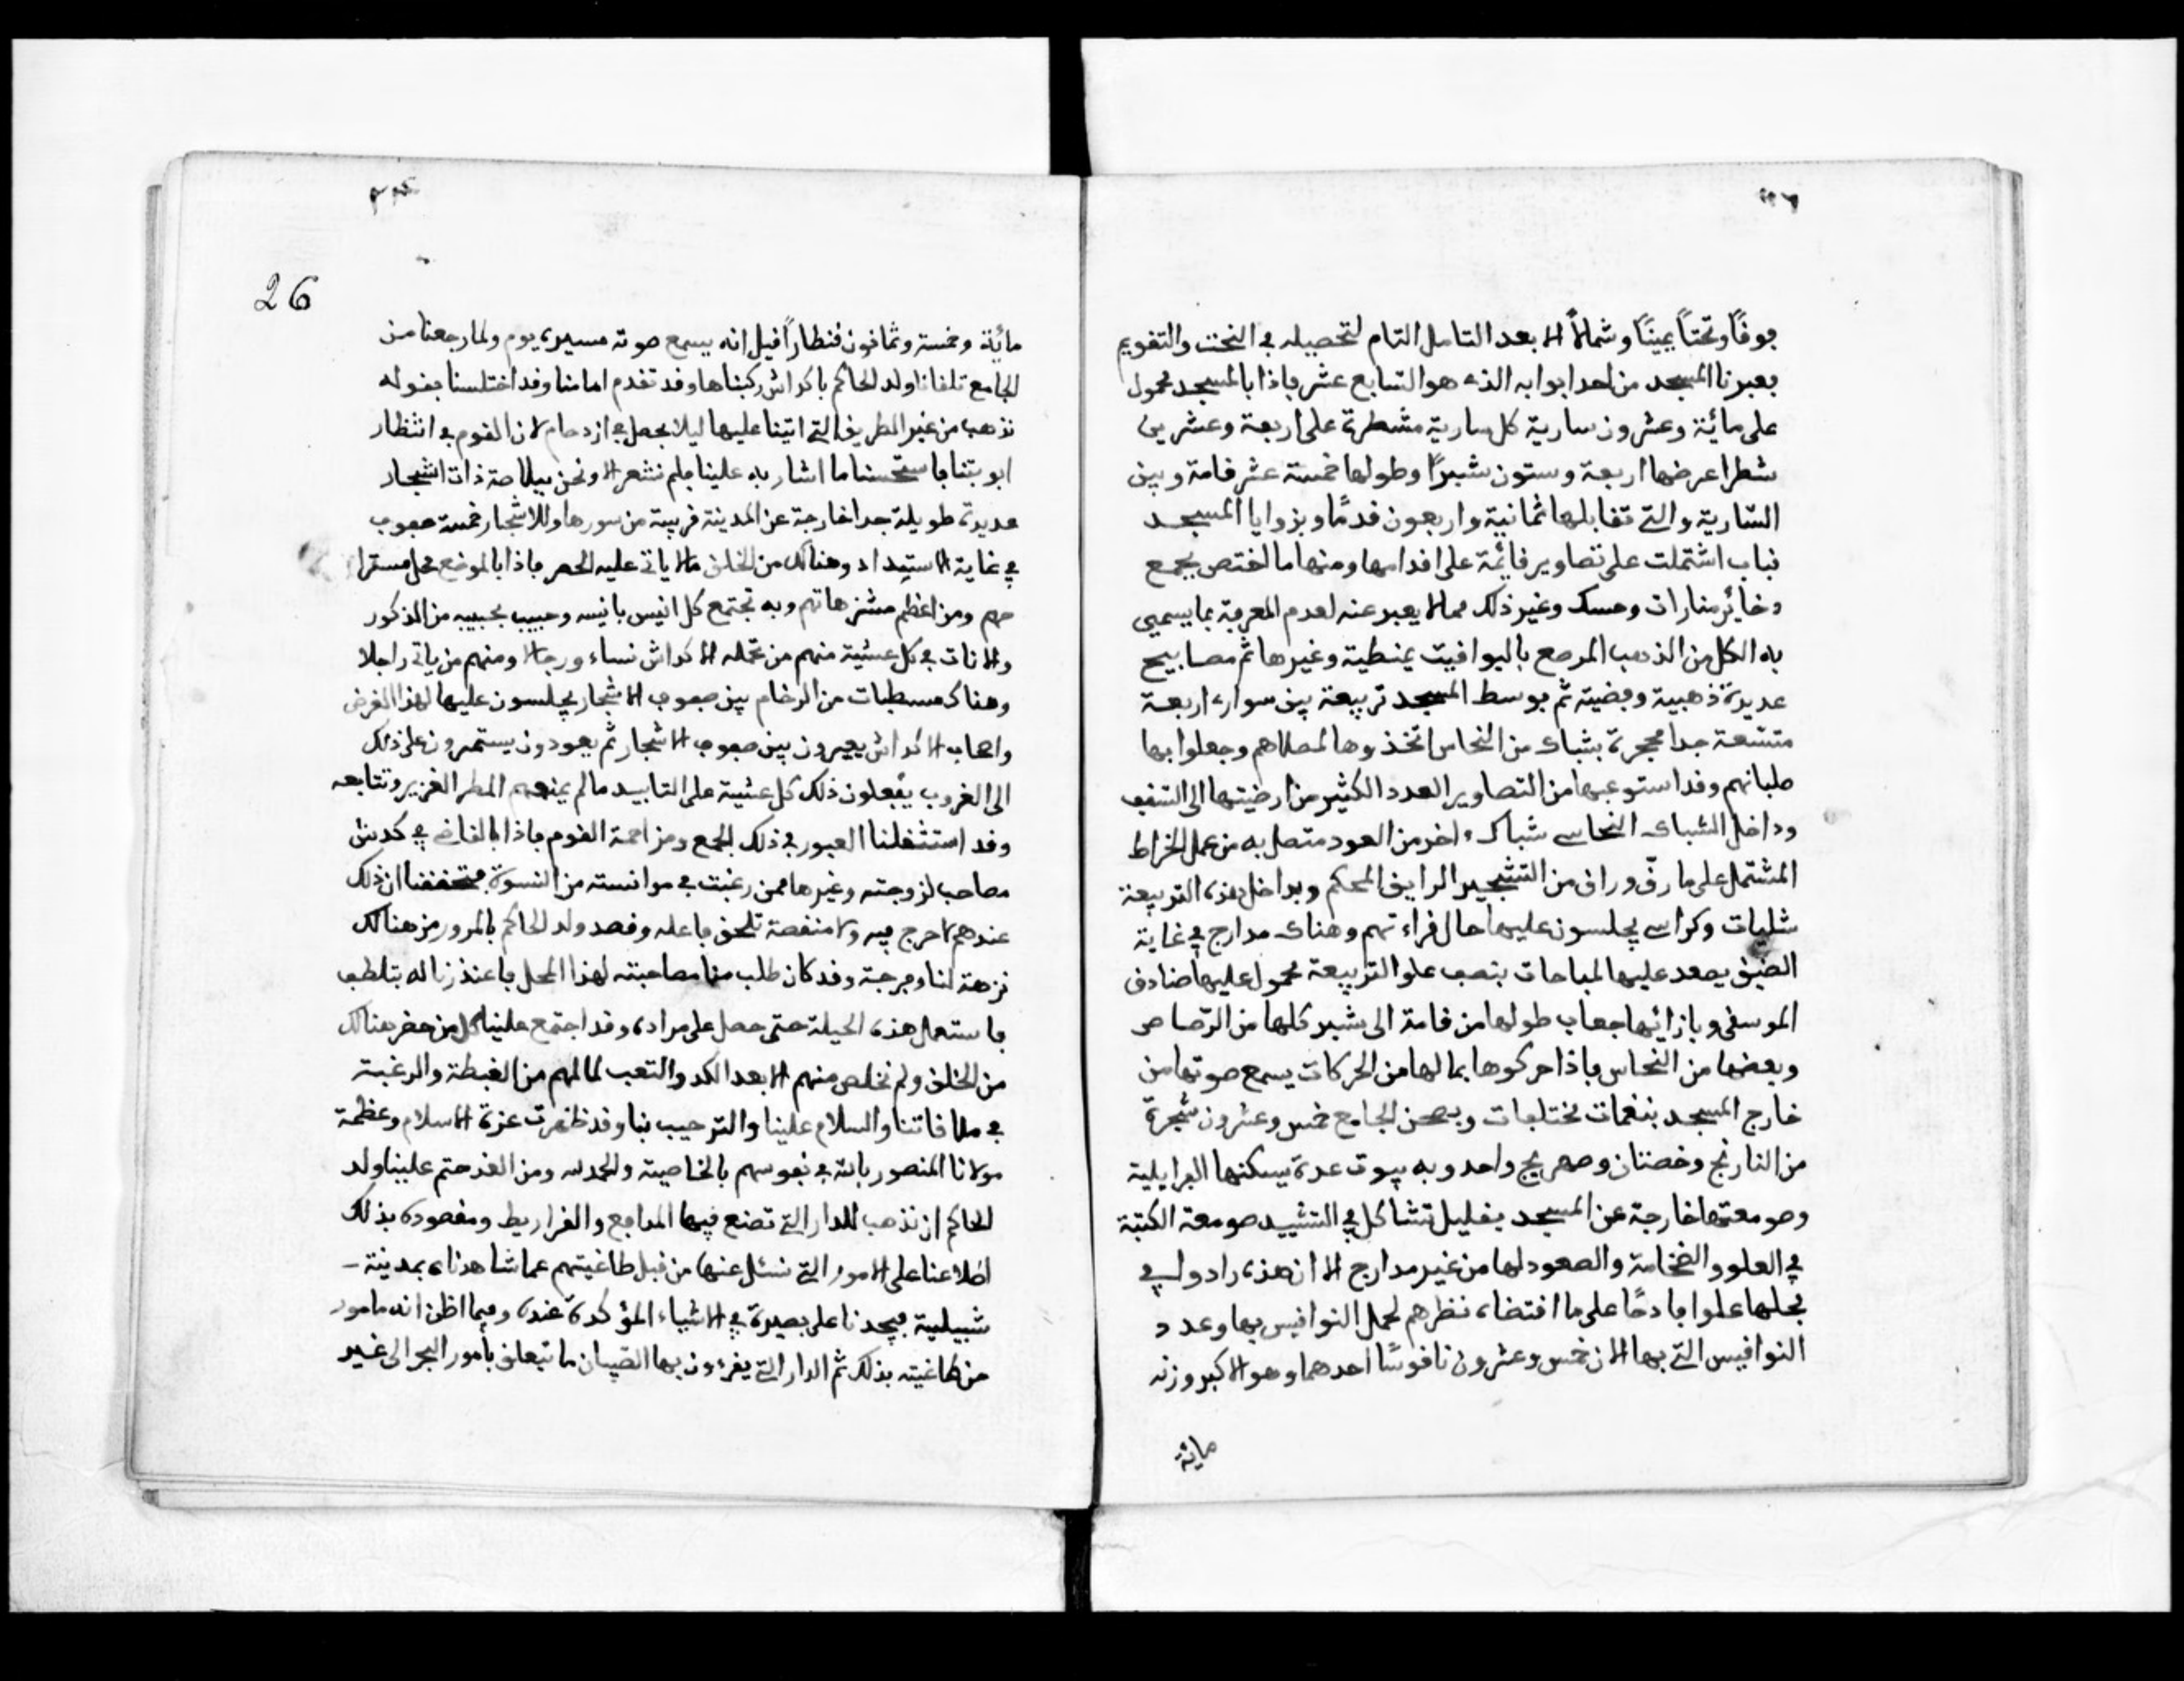 فوقًا وتحتًا يمينًا وشمالًا الا بعد التامل التام لتحصيله في النحت والتقويم
فعبرنا المسجد من احد ابوابه الذي هو السابع عشر فاذا بالمسجد محمول
على مائة وعشرون سارية كل سارية مشطرة على اربعة وعشرين
شطرا عرضها اربعة وستون شبرًا وطولها خمسة عشر قامة وبين
السّارية والتي تقابلها ثمانية واربعون قدمًا وبزوايا المسجد
قباب اشتملت على تصاوير قائمة على اقدامها ومنها ما اختص بجمع
دخائر منارات وحسك وغير ذلك مما لا يعبر عنه لعدم المعرفة بما يسمى
به الكل من الذهب المرصع باليواقيت يمنطية وغيرها ثم مصابيح
عديدة ذهبية وفضية ثم بوسط المسجد تربيعة بين سواري اربعة
متسعة جدا محجرة بشباك من النحاس اتخذوها لمصلاهم وجعلوا بها
صلبانهم وقد استوعبها من التصاوير العدد الكثير من ارضيتها الى السقف
وداخل الشباك النحاسي شباك ءاخر من العود متصل به من عمل الخراط
المشتمل على ما رقّ وراق من التشجير الرايق المحكم وبداخل هذه التربيعة
شليات وكراسي يجلسون عليها حال قراءتهم وهناك مدارج في غاية
الضيق يصعد عليها لمباحات بنصف علو التربيعة محمول عليها صنادق
الموسقى وبازائها جعاب طولها من قامة الى شبر كلها من الرّصاص
وبعضها من النحاس فاذا حركوها بما لها من الحركات يسمع صوتها من
خارج المسجد بنغمات مختلفات وبصحن الجامع خمس وعشرون شجرة
من النارنج وخصتان وصهريج واحد وبه بيوت عدة يسكنها الفرايلية
وصومعتها خارجة عن المسجد بقليل تشاكل في التشييد صومعة الكتبة
في العلو والضخامة والصعود لها من غير مدارج الا ان هذه زادوا في
فحلها علوا فادحًا على ما اقتضاه نظرهم لحمل النواقيس بها وعدد
النواقيس التي بها الان خمس وعشرون ناقوسًا احدهما وهو الاكبر وزنه
مائة
26
مائة وخمسة وثمانون قنطارًا قيل انه يسمع صوته مسيرة يوم ولما رجعنا من
الجامع تلقانا ولد الحاكم باكداش ركبناها وقد تقدم امامنا وقد اختلسنا بقوله
نذهب من غير الطريق التي اتينا عليها ليلا يحصل في ازدحام لان القوم في انتظار
اوبتنا فاستحسنا ما اشار به علينا فلم نشعر الا ونحن ببلاصة ذات اشجار
عديدة طويلة جدا خارجة عن المدينة قريبة من سورها وللاشجار خمسة صفوف
في غاية الاستبداد وهنالك من الخلق ما لا ياتي عليه الحصر فاذا بالموضع محل مستراحهم
ومن اعظم منتزهاتهم وبه تجتمع كل انيس بانيسه وحبيب بحبيبه من الذكور
والاناث في كل عشية منهم من تحمله الاكداش نساء ورجالا ومنهم من ياتي راجلا
وهناك مسطبات من الرخام بين صفوف الاشجار يجلسون عليها لهذا الغرض
واصحاب الاكداش يعبرون بين صفوف الاشجار ثم يعودون يستمرون على ذلك
الى الغروب يفعلون ذلك كل عشية على التابيد ما لم يمنعهم المطر الغزير وتتابعه
وقد استثقلنا العبور في ذلك الجمع ومزاحمة القوم فاذا بالقاضي في كدش
مصاحب لزوجته وغيرها ممن رغبت في موانسته من النسوة فتحققنا ان ذلك
عندهم لا حرج فيه ولا منقصة تلحق فاعله وقصد ولد الحاكم بالمرور من هنالك
نزهة لنا وفرجة وقد كان طلب منا مصاحبته لهذا المحل فاعتذرنا له بتلطف
فاستعمل هذه الحيلة حتى حصل على مراده وقد اجتمع علينا كل من حضر هنالك
من الخلق ولم نخلص منهم الا بعد الكد والتعب لما لهم من الغبطة والرغبة
في ملاقاتنا والسلام علينا والترحيب بنا وقد ظهرت عزة الاسلام وعظمة
مولانا المنصور بالله في نفوسهم بالخاصية والحمد لله ومن الغد حتم علينا ولد
الحاكم ان نذهب للدار التي تصنع فيها المدافع والقراريط ومقصوده بذلك
اطلاعنا على الامور التي نسئل عنها من قبل طاغيتهم عما شاهدناه بمدينة
شبيلية فيجدنا على بصيرة في الاشياء المؤكدة عنده وفيما اظن انه مامور
من طاغيته بذلك ثم الدار التي يقرءون بها الصّبيان ما تيعلق بأمور البحر الى غير